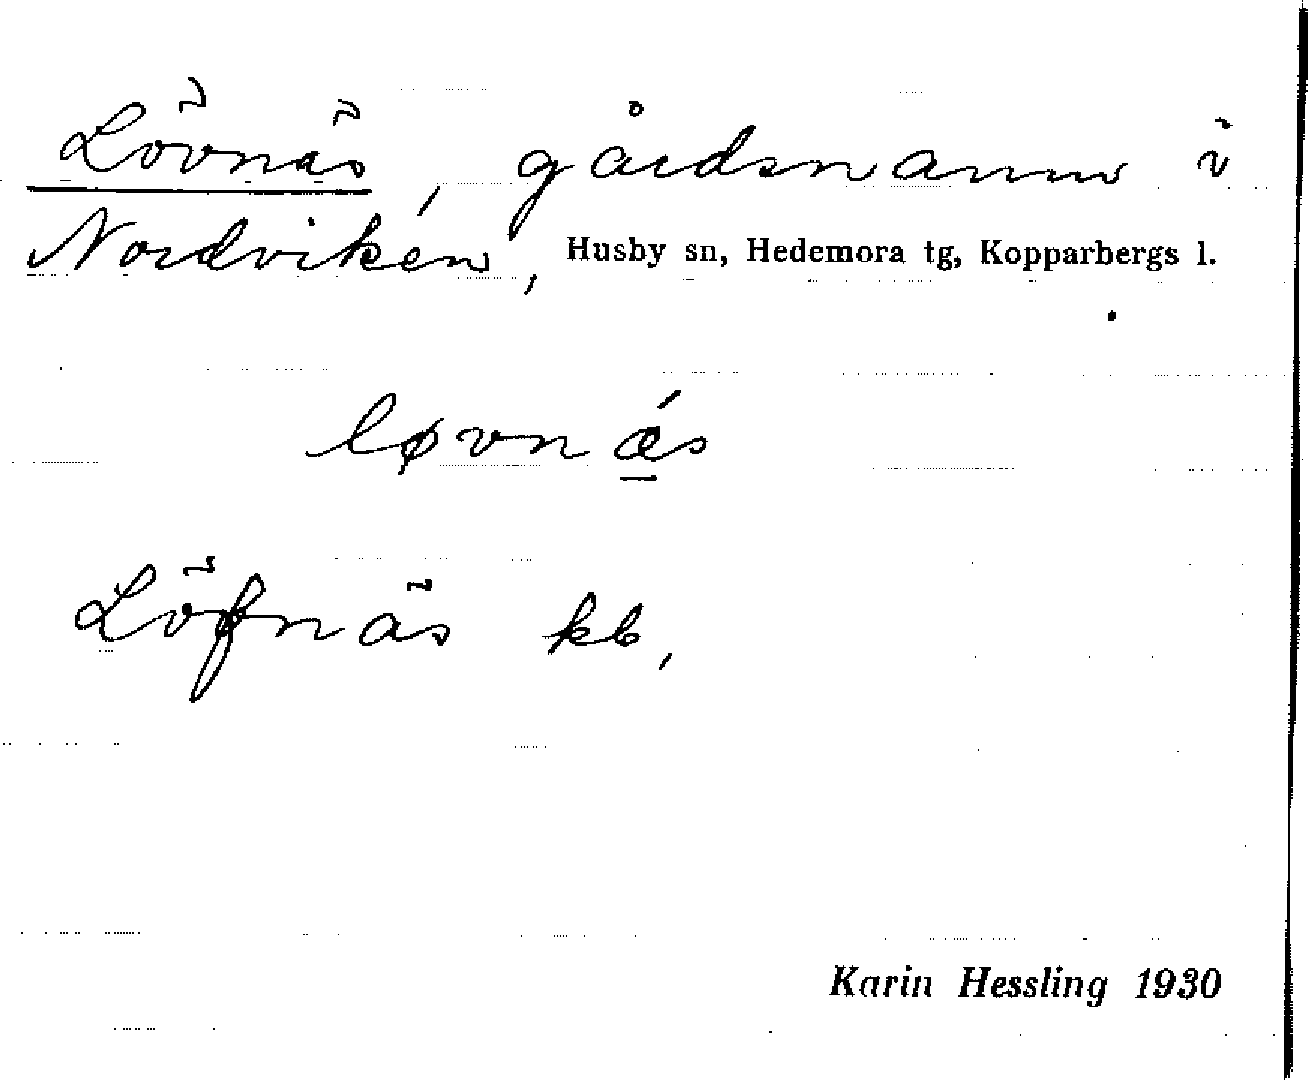 Lövnäs, gårdsnamn i
Nordviken, Husby sn, Hedemora tg, Kopparbergs l.
løvnǽ̠s
Löfnäs kb,
Karin Hessling 1930